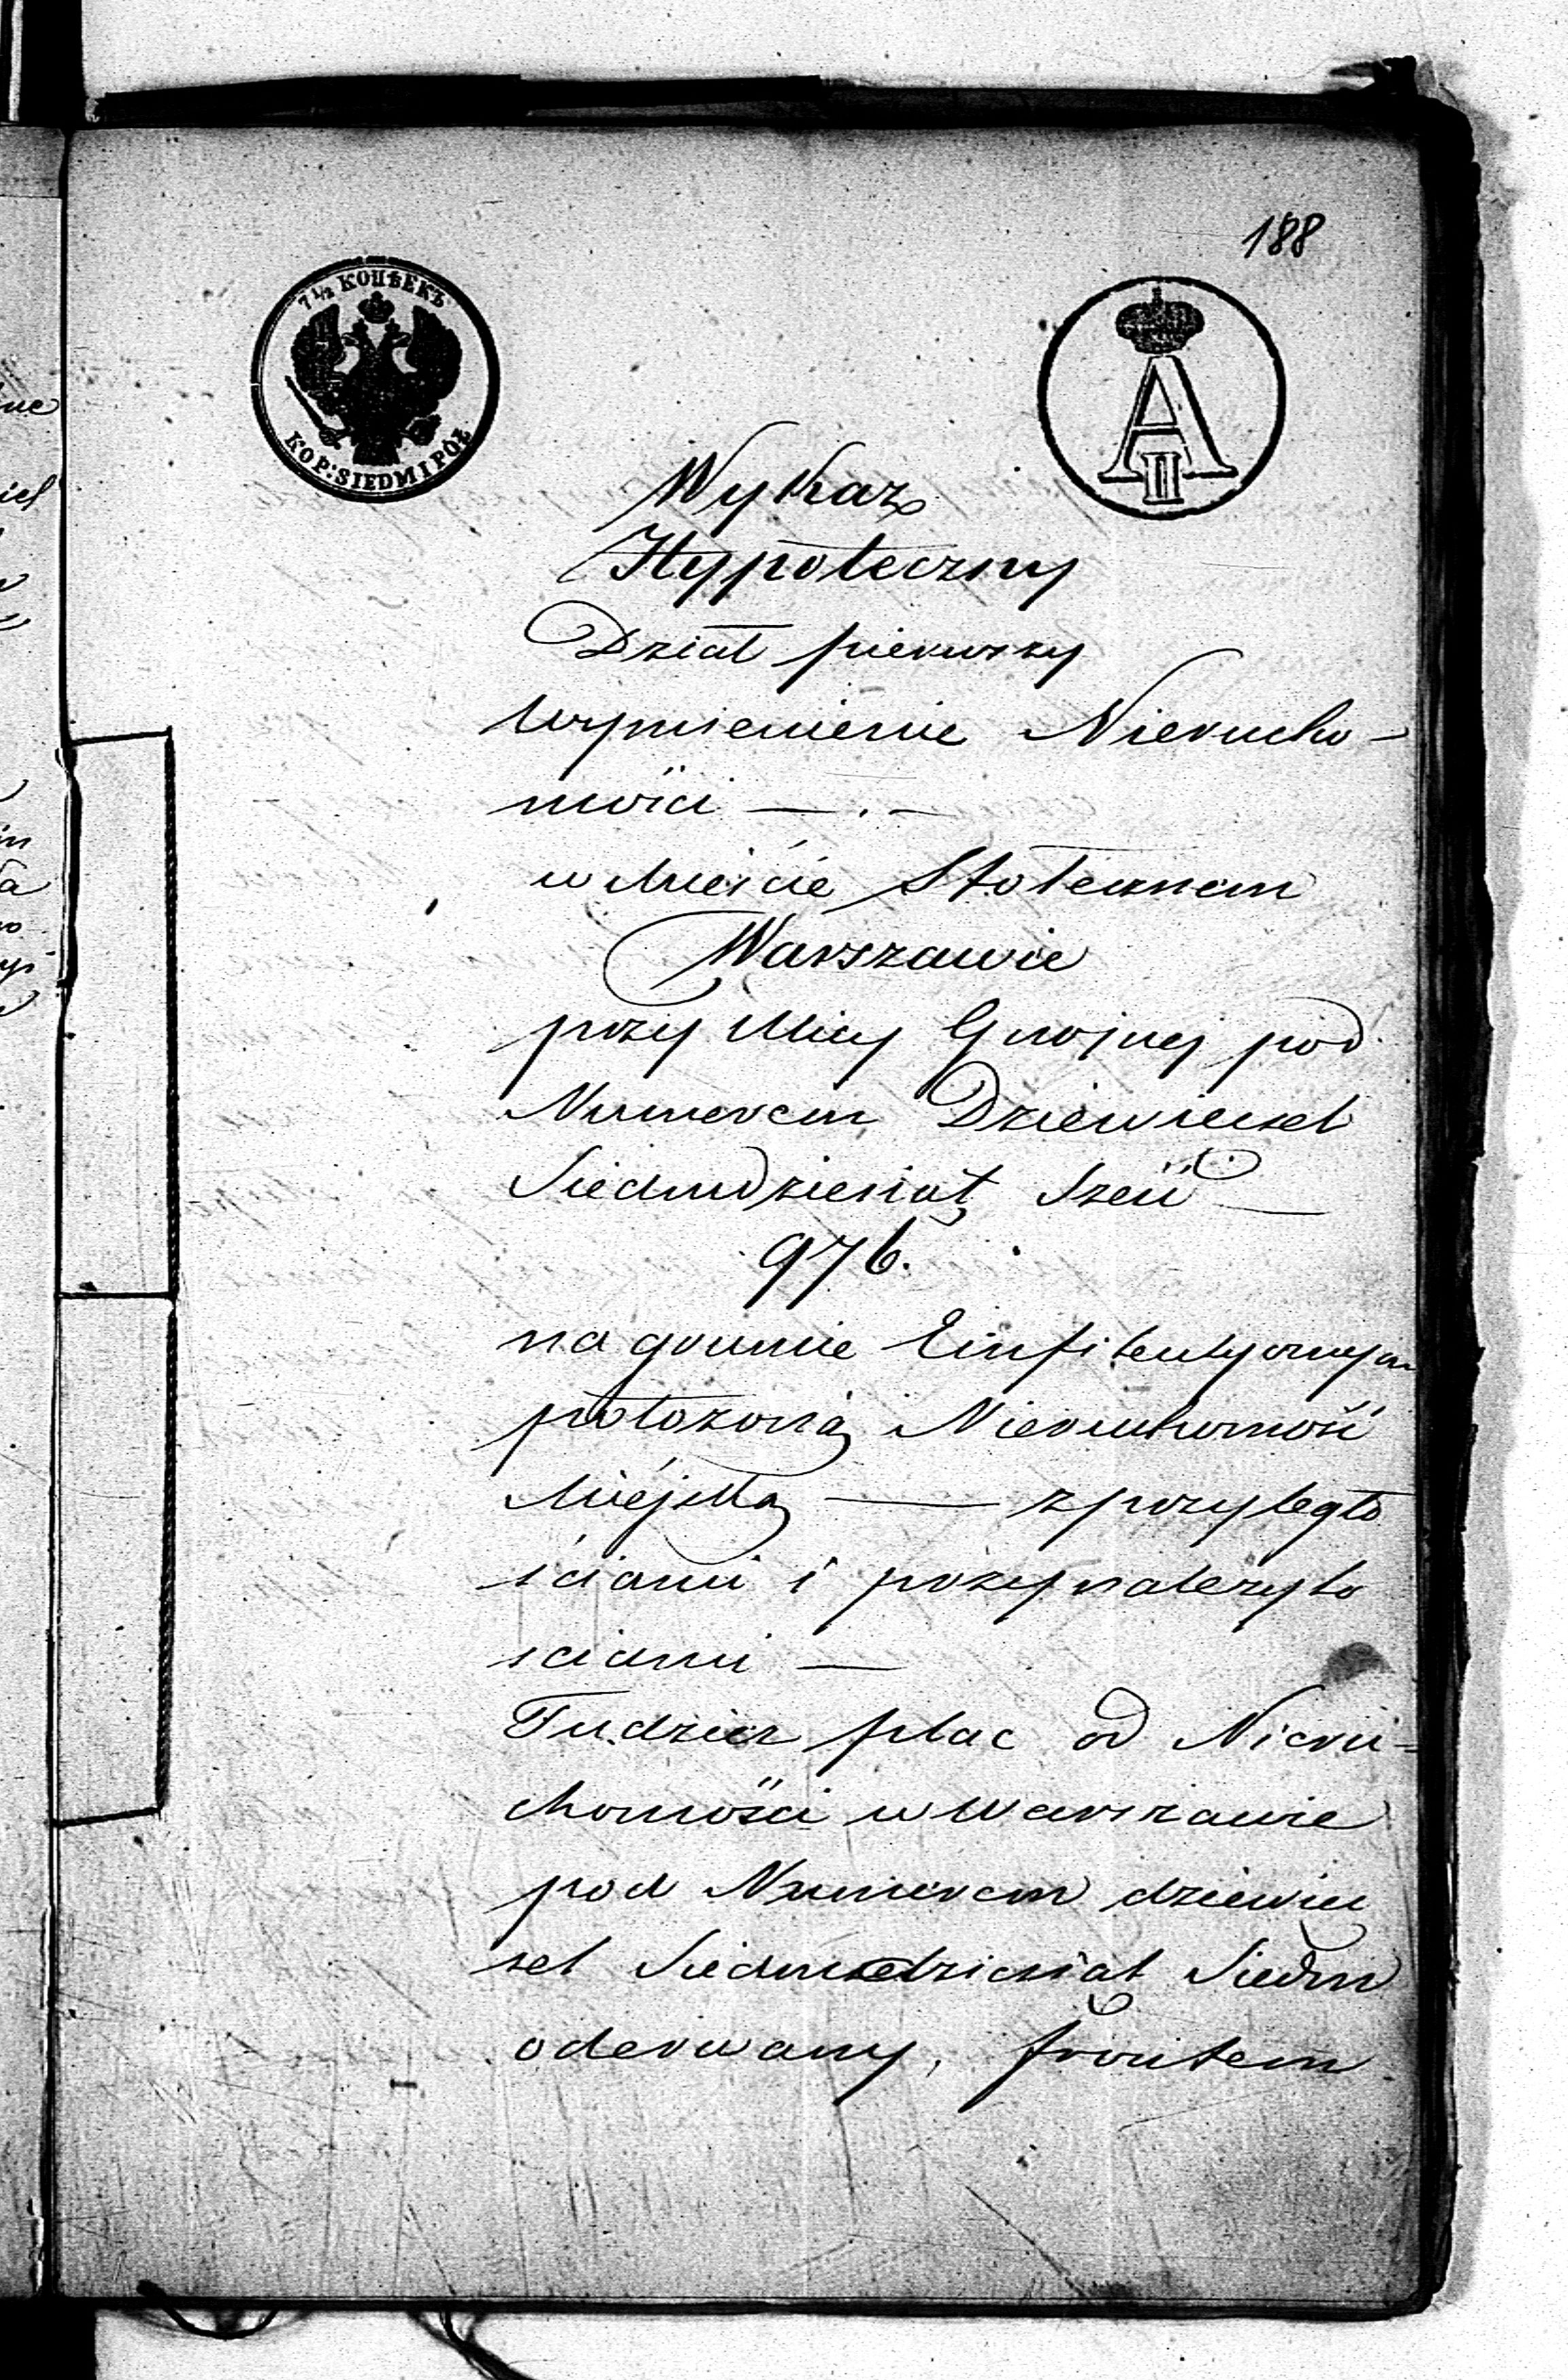 188
7 1/2 КОПѢЕКЪ
KOP: SIEDM I PÓŁ
A II
Wykaz
Hypoteczny
Dział pierwszy
Wymienienie Nierucho-
mości —.—
w Mieście Stołecznem
Warszawie
przy Ulicy Gnojnej pod
Numerem Dziewięćset
Siedmdziesiąt Sześć —
976.
na gruncie Emfiteutycznym
położoną Nieruchomość
Miejską — z przyległo
ściami i przynależyto
sciami —
Tudzież plac od Nieru-
chomości w Warszawie
pod Numerem dziewięć
set Siedmdziesiąt Siedm
oderwany, frontem